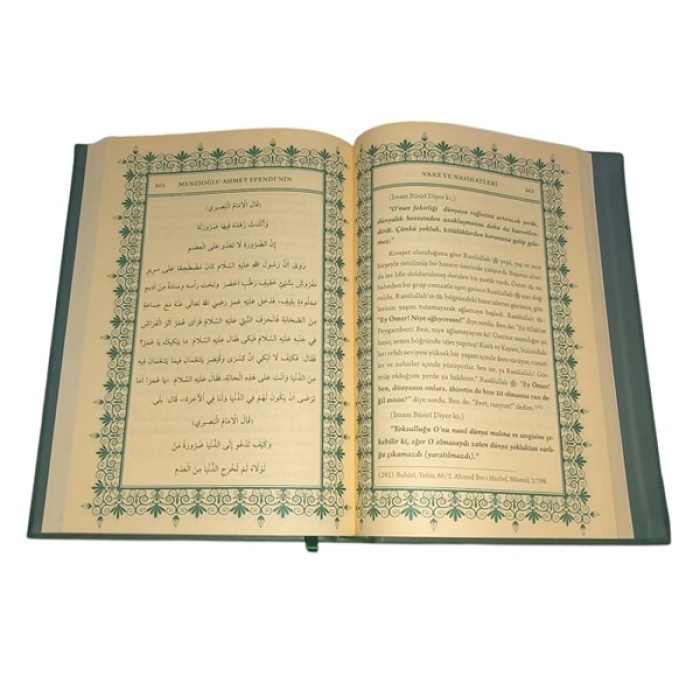 262 MENZİOĞLU AHMET EFENDİ'NİN
(قَالَ الْإِمَامُ الْبُصِيرِي)
وَأَكَّدَتْ زُهْدَهُ فِيهَا ضَرُورَتُهُ
إِنَّ الضَّرُورَةَ لَا تَعْدُو عَلَى الْعِصَمِ
رُوِىَ أَنَّ رَسُولَ اللهِ عَلَيْهِ السَّلَامُ كَانَ مُضْطَجِعًا عَلَى سَرِيرٍ
مَفْرُوشٍ بِشَيْئٍ خَفِيفٍ رَطْبٍ أَخْضَرَ وَتَحْتَ رَأْسِهِ وِسَادَةٌ مِنْ أَدِيمٍ
مَمْلُوءَةٍ بِلِيفٍ، فَدَخَلَ عَلَيْهِ عُمَرُ رَضِيَ اللهُ تَعَالَى عَنْهُ مَعَ جَمَاعَةٍ
مِنَ الصَّحَابَةِ فَانْحَرَفَ النَّبِيُّ عَلَيْهِ السَّلَامُ فَرَأَى عُمَرُ أَثَرَ الْفِرَاشِ
فِي جَنْبِهِ عَلَيْهِ السَّلَامُ فَبَكَى فَقَالَ عَلَيْهِ السَّلَامُ: مَا يُبْكِيكَ يَا عُمَرُ؟
فَقَالَ: فَكَيْفَ لَا أَبْكِي أَنَّ كِسْرَى وَقَيْصَرَ يَتَنَعَّمَانِ فِيمَا يَتَنَعَّمَانِ فِيهِ
مِنَ الدُّنْيَا وَأَنْتَ عَلَى هَذِهِ الْحَالَةِ، فَقَالَ عَلَيْهِ السَّلَامُ: «يَا عُمَرُ! أَمَا
تَرْضَى أَنْ يَكُونَ لَهُمْ فِي الدُّنْيَا وَلَنَا فِي الْآخِرَةِ»، قَالَ: بَلَى
(قَالَ الْإِمَامُ الْبُصِيرِي)
وَكَيْفَ تَدْعُو إِلَى الدُّنْيَا ضَرُورَةُ مَنْ
لَوْلَاهُ لَمْ تُخْرَجِ الدُّنْيَا مِنَ الْعَدَمِ
VAAZ VE NASİHATLERİ 263
(İmam Bûsirî Diyor ki;)
"O'nun fakirliği dünyaya rağbetini artıracak yerde,
dünyalık hevesinden uzaklaşmasını daha da kuvvetlen-
dirdi. Çünkü yokluk, kötülüklerden korunana galip gele-
mez."
Rivayet olunduğuna göre Rasûlullah ﷺ yeşil, yaş ve ince
birşeyle örtülmüş bir hasırın üzerinde yatıyordu. Başının altın-
da ise lifle doldurulmuş deriden bir yastık vardı. Ömer
habeden bir grup cemaatle içeri girince Rasûlullah ﷺ yan doğ-
ruldu. Rasûlullah'ın ﷺ böğründeki hasır izlerini görünce, göz-
lerinin yaşını tutamayarak ağlamaya başladı. Rasûlullah ﷺ
"Ey Ömer! Niye ağlıyorsun?" diye sordu. Ben de: "Ey Allah'ın
Peygamberi! Ben, niye ağlamayayım ki! Üzerine uzandığın şu
hasır, senin böğründe izler yapmış! Kisrâ ve Kayser, bulunduk-
ları refah seviyesi yüksek bir yaşam içinde dem sürüyor, nimet-
ler ve nehirler içinde yüzüyorlar. Sen ise, ya Rasûlullah! Gör-
müş olduğum yerde ya haldesin." Rasûlullah ﷺ "Ey Ömer!
Sen, dünyanın onlara, âhiretin de bize âit olmasına razı de-
ğil misin?" diye sordu. Ben de, "Evet, razıyım!" dedim.
(İmam Bûsirî Diyor ki;)
"Yoksulluğu O'nu nasıl dünya malına ve sevgisine çe-
kebilir ki, eğer O olmasaydı zaten dünya yokluktan varlı-
ğa çıkamazdı (yaratılmazdı)."
(292) Buhârî, Tefsir, 66/2; Ahmed İbn-i Hanbel, Müsned, 2/298.